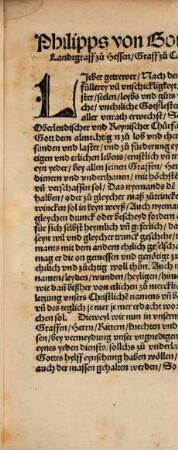 Philipps von Got
Landtgraff zů Hessen / Graff zů C
Lieber getrewer / Nach dem
füllerey vñ vnschickligkeyt
ster / seelen / leybs vnd gůts v
che / vnehrliche Gotßlester
aller vnrath erwechst / S
Oberlendischer vnd Reynischer Chürfü
Gott dem almechtig zů lob vnd eh
sunden vnd laster / vnd zů fürderung ey
tigen vnd erlichen lebens / ernstlich vñ m
eyn yeder / bey allen seinen Graffen / Her
dienern vnd vnderthanen / mit höchst
vñ verschaffen sol / Das nyemands de
halben / oder zů gleycher maß sürtrinck
wincken sol in keyn weyß / Auch nyeman
gleychen drunck oder bescheyd fordern
für sich selbst heymlich vñ
seyn vol vnd gleycher drunck / gescheche
mants mit dem andern ehrlich
mag er die on genessen vnd genötigt z
ehrlich vnd züchtig woll thün. Auch
namen / leyden / wunden / heyligen / hin
wie dañ bißher von etlichen zů mercklic
letzung vnsers Christlichē namens vñ be
vñ des teglich ye mer ye mer erdacht wor
chen sol. Dieweyl wir nun in vnserm
Graffen / Herrn / Rittern / knechten vnd
sen / bey vermeydung vnser vngnedigen
eynes yeden diensts / sollichs zů vnderla
Gottes hylff eynsehung haben wöllen /
auch der massen gehalten werden / So